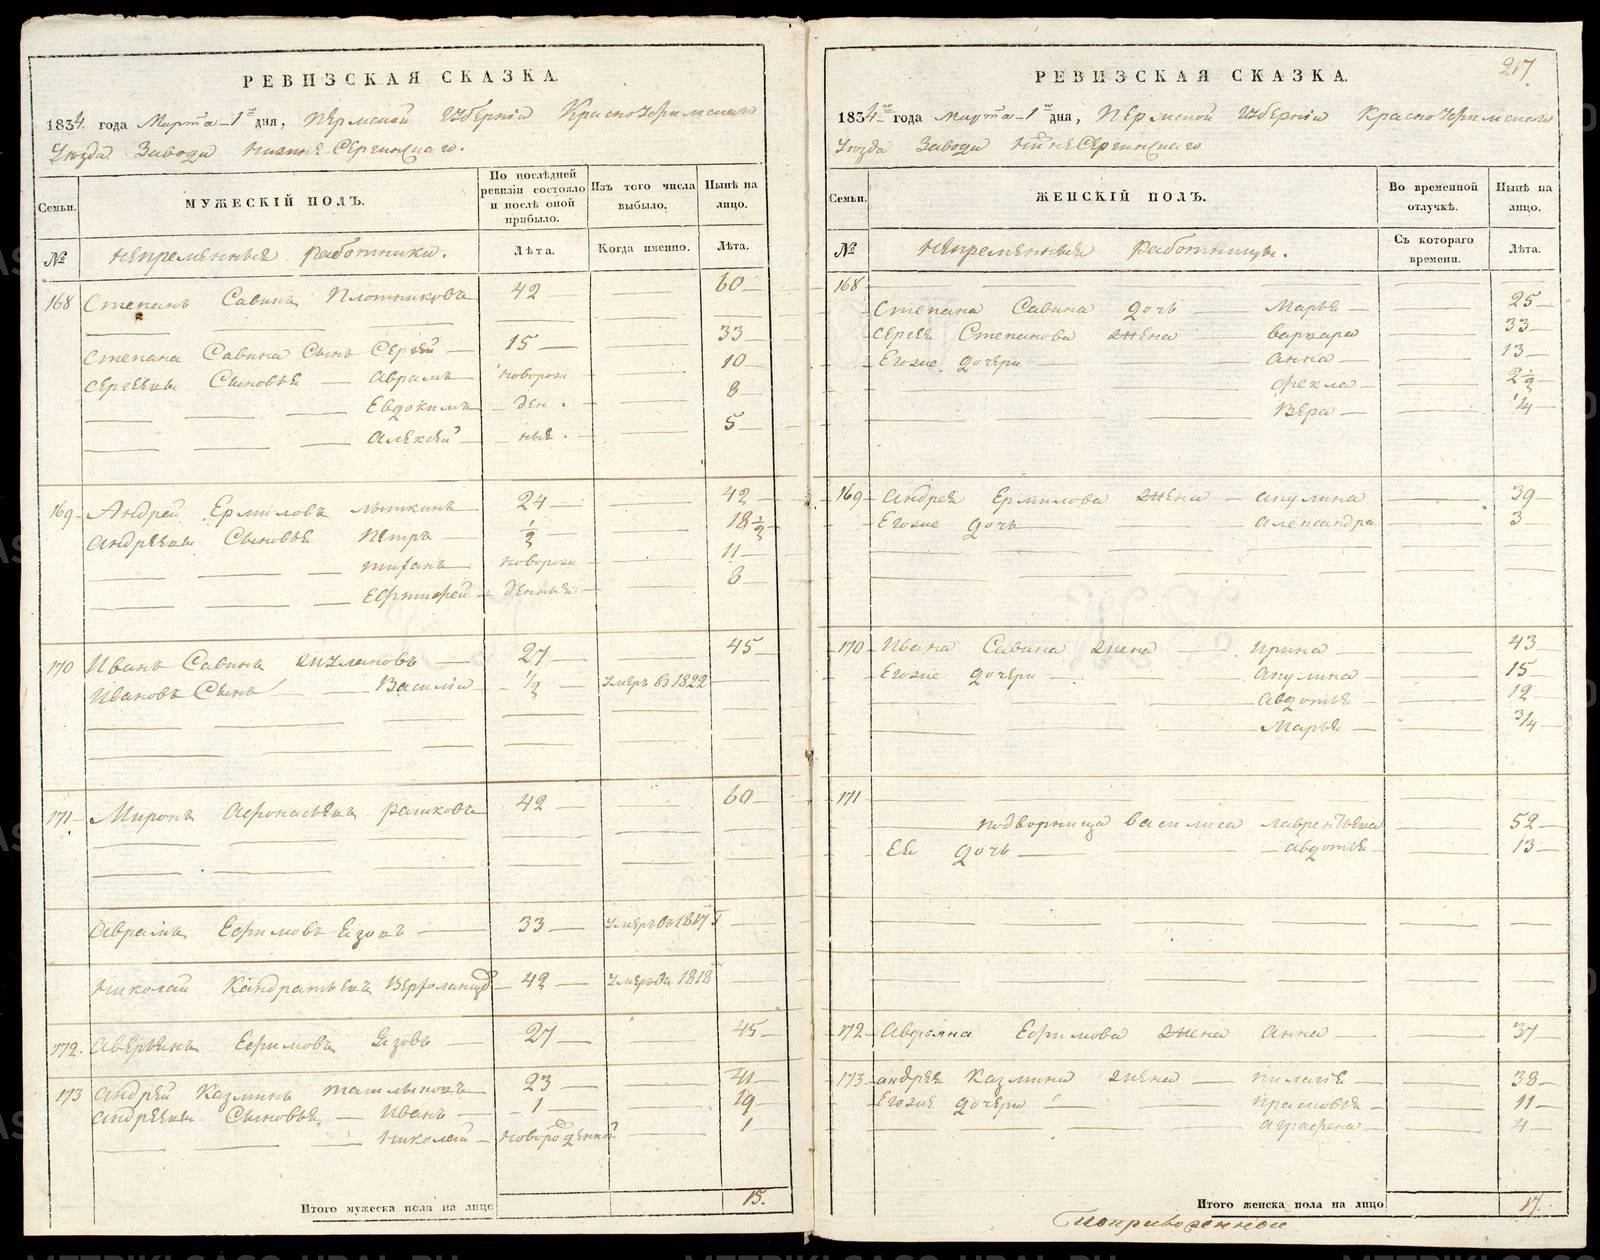 РЕВИЗСКАЯ СКАЗКА.
1834 года Марта 1го дня, Пермской Губернiи Красноуфимскаго
Уезда Завода Нижне Сергинскаго.
Семьи.
МУЖЕСКIЙ ПОЛЪ.
По последней ревизiи состояло и после оной прибыло.
Изъ того числа выбыло.
Ныне на лицо.
№
Непременные работники.
Лета.
Когда именно.
Лета.
168 Степанъ Савинъ Плотниковъ 42 60
Степана Савина сынъ Сергей 15 33
Сергеевы сыновья Аврамъ новорож 10
Евдокимъ ден 8
Алексей ные 5
169 Андрей Ермиловъ 24 42
Андреевы сыновья Петръ 1/2 18 1/2
новорож 11
денные 8
170 Иванъ Савинъ 27 45
Ивановъ сынъ Василiй 1/2 умеръ въ 1822
171 Миронъ Афонасьевъ 42 60
Аврамъ Ефимовъ Язовъ 33 умеръ въ 1817
Николай Кандратьевъ 42 умеръ въ 1818
172 Аверьянъ Ефимовъ Язовъ 27 45
173 Андрей Казминъ 23 41
Андреевы сыновья Иванъ 1 19
Николай новорожденной 1
Итого мужеска пола на лицо 15.
217
РЕВИЗСКАЯ СКАЗКА.
1834го года Марта 1го дня, Пермской Губернiи Красноуфимскаго
Уезда Завода Нижне Сергинскаго
Семьи.
ЖЕНСКIЙ ПОЛЪ.
Во временной отлучкѣ.
Ныне на лицо.
№
Непременныя работницы.
Съ котораго времени.
Лета.
168
Степана Савина дочь Марья 25
Сергея Степанова жена Варвара 33
Егоже дочери Анна 13
Фекла 2 1/2
Вера 1/4
169 Андрея Ермилова жена Акулина 39
Егоже дочь Александра 3
170 Ивана Савина жена Ирина 43
Егоже дочери Акулина 15
Авдотья 12
Марья 3/4
171
Подворница Василиса Лаврентьева 52
Ее дочь Авдотья 13
172 Аверьяна Ефимова жена Анна 37
173 Андрея Казмина жена Пилагея 38
Егоже дочери Прасковья 11
Аграфена 4
Итого женска пола на лицо 17.